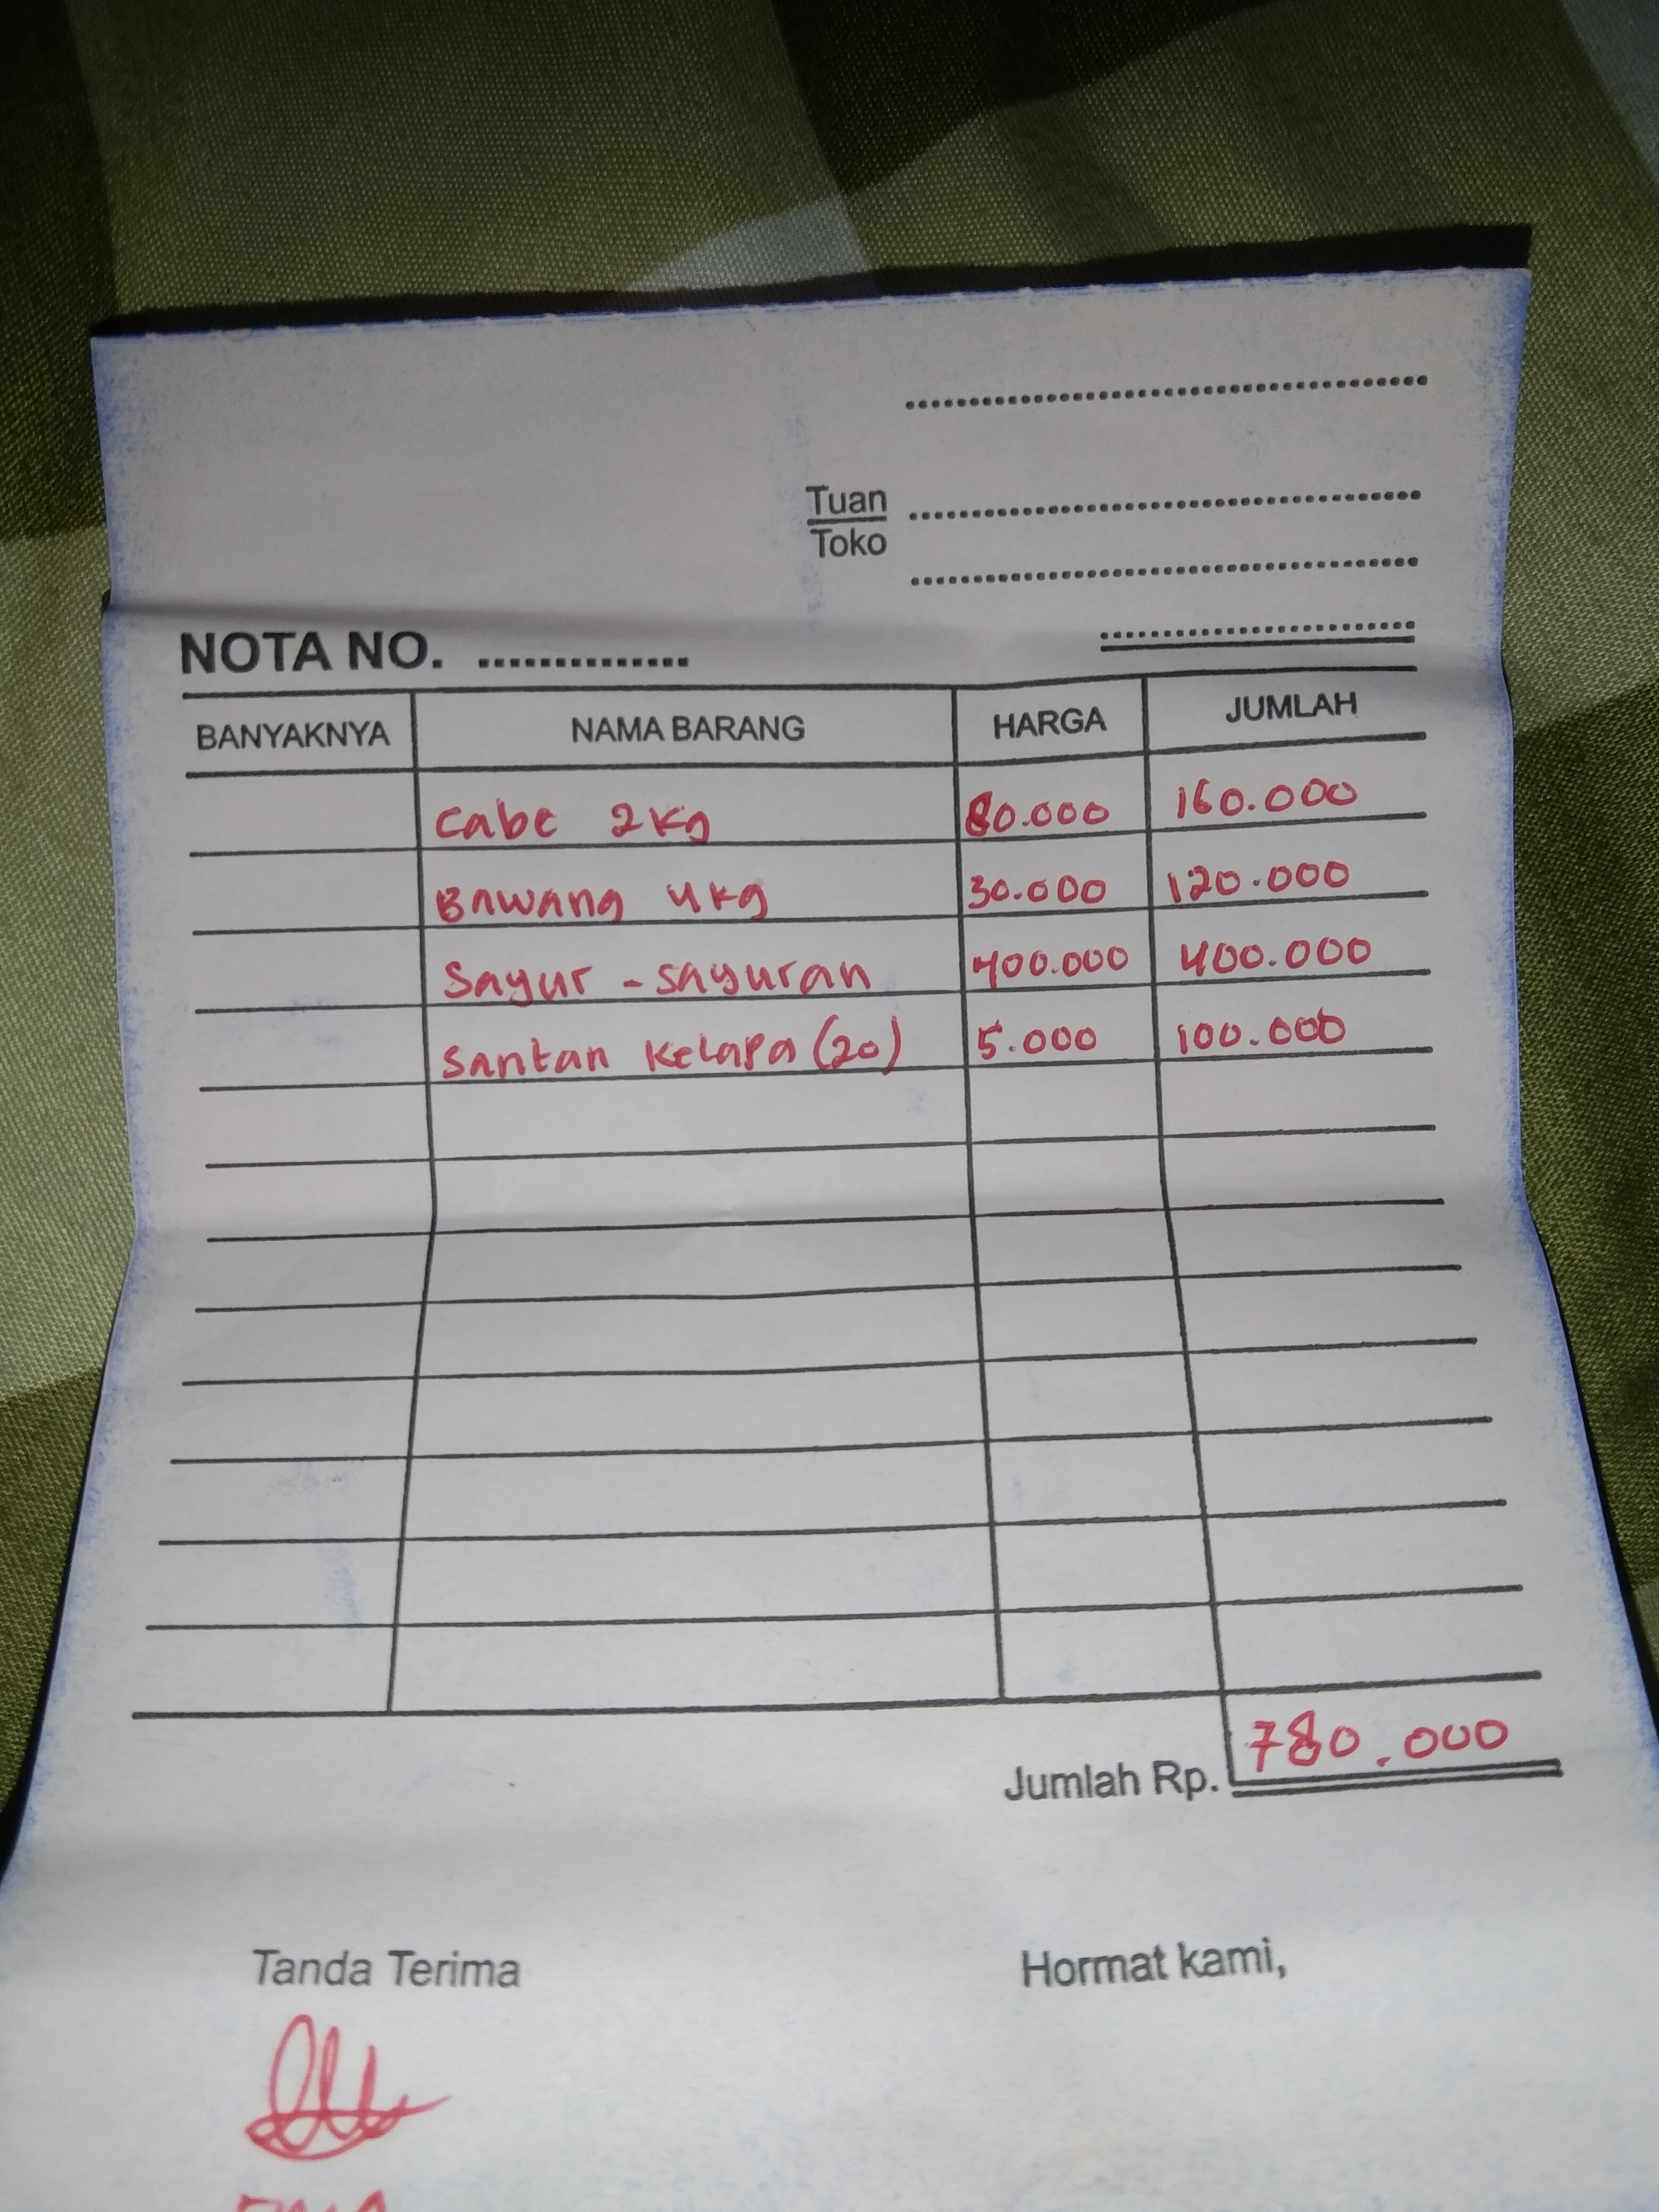 Tuan
Toko
NOTA NO. ..............
BANYAKNYA NAMA BARANG HARGA JUMLAH
Cabe 2Kg 80.000 160.000
Bawang 4kg 30.000 120.000
Sayur - sayuran 400.000 400.000
Santan Kelapa (20) 5.000 100.000
Jumlah Rp. 780.000
Tanda Terima Hormat kami,